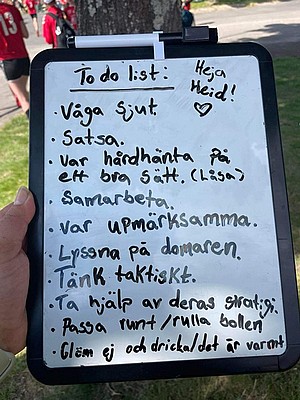 To do list:
Heja
Heid!
♡
· Våga sjut.
· Satsa.
· Var hårdhänta på
ett bra sätt. (Låsa)
· Samarbeta.
· Var uppmärksamma.
· Lyssna på domaren.
· Tänk taktiskt.
· Ta hjälp av deras stratigi.
· Passa runt/rulla bollen
· Glöm ej och dricka/det är varmt